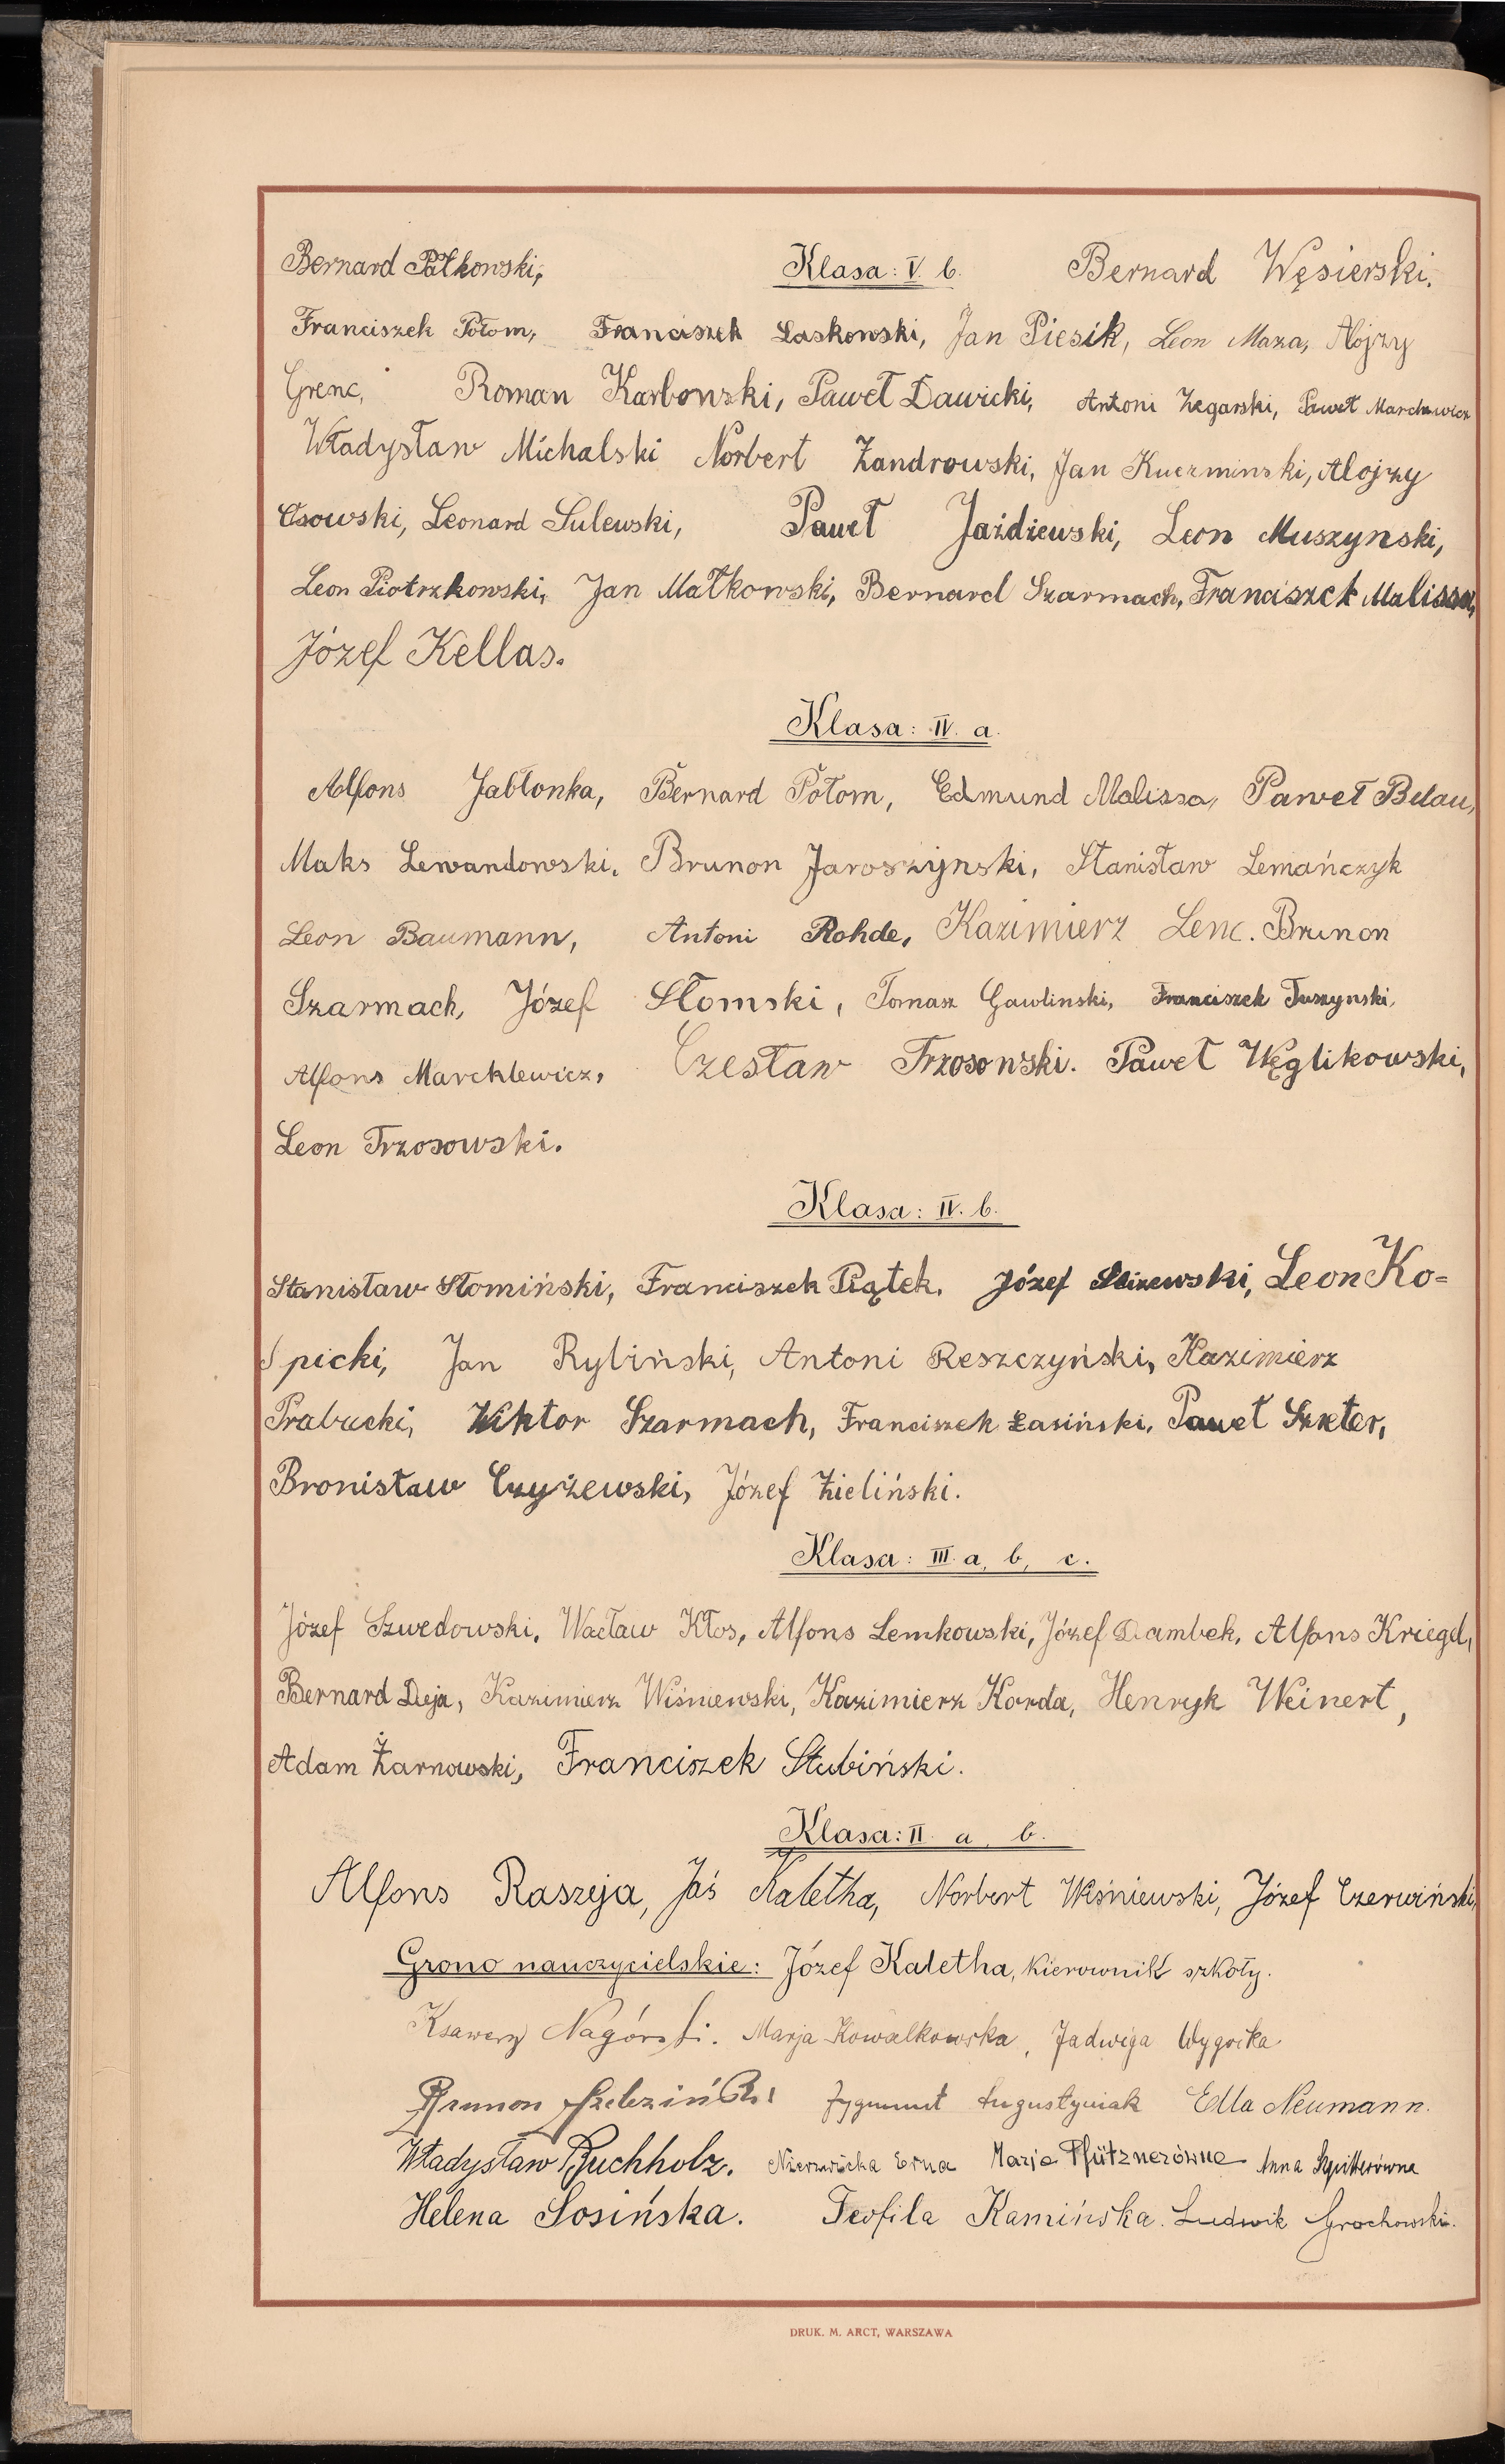 Bernard Pałkowski, Klasa: V. b. Bernard Węsierski.
Franciszek Połom, Franciszek Laskowski, Jan Piesik, Leon Maza, Alojzy
Grenc, Roman Karbowski, Paweł Dawicki, Antoni Zegarski, Paweł Marchewicz
Władysław Michalski Norbert Żandrowski, Jan Kuczminski, Alojzy
Osowski, Leonard Sulewski, Paweł Jażdżewski, Leon Muszynski,
Leon Piotrzkowski, Jan Małkowski, Bernard Szarmach, Franciszek Malissa,
Józef Kellas.
Klasa: IV. a.
Alfons Jabłonka, Bernard Połom, Edmund Malissa, Paweł Belau,
Maks Lewandowski, Brunon Jaroszynski, Stanisław Lemańczyk
Leon Baumann, Antoni Rohde, Kazimierz Lenc. Brunon
Szarmach, Józef Słomski, Tomasz Gawlinski, Franciszek Tuszynski,
Alfons Marcklewicz, Czesław Trzosowski. Paweł Węglikowski,
Leon Trzosowski.
Klasa: IV. b.
Stanisław Słomiński, Franciszek Piątek, Józef Slizewski, Leon Ko=
picki, Jan Ryliński, Antoni Reszczyński, Kazimierz
Prabucki, Wiktor Szarmach, Franciszek Łasiński, Paweł Szreter,
Bronisław Czyżewski, Józef Zieliński.
Klasa: III. a, b, c.
Józef Szwedowski, Wacław Kłos, Alfons Lemkowski, Józef Dambek, Alfons Kriegel,
Bernard Deja, Kazimierz Wiśniewski, Kazimierz Korda, Henryk Weinert,
Adam Żarnowski, Franciszek Słubiński.
Klasa: II. a, b.
Alfons Raszeja, Jaś Kaletha, Norbert Wiśniewski, Józef Czerwiński,
Grono nauczycielskie: Józef Kaletha, kierownik szkoły.
Ksawery Nagórski. Marja Kowalkowska, Jadwiga Wygocka
Brunon Zygmunt Augustyniak Edla Neumann.
Władysław Buchholz. Nierzwicka Erna Marja Pfütznerówna Anna Szpitterówna
Helena Sosińska. Teofila Kamińska. Ludwik Grochowski.
DRUK. M. ARCT, WARSZAWA